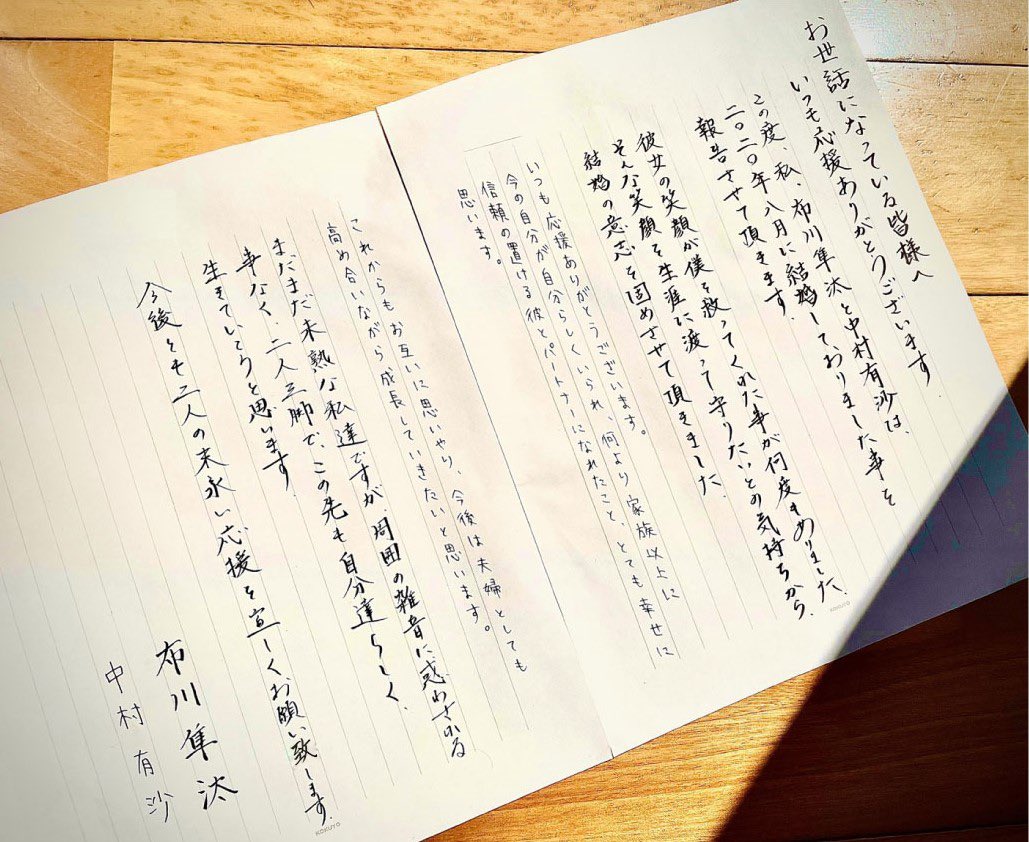 お世話になっている皆様へ
いつも応援ありがとうございます
この度、私・布川隼汰と中村有沙は、
二〇二〇年八月に結婚しておりました事を
報告させて頂きます。
彼女の笑顔が僕を救ってくれた事が何度もありました。
そんな笑顔を生涯に渡って守りたいとの気持ちから、
結婚の意志を固めさせて頂きました。
いつも応援ありがとうございます。
今の自分が自分らしくいられ、何より家族以上に
信頼の置ける彼とパートナーになれたこと、とても幸せに
思います。
これからもお互いに思いやり、今後は夫婦としても
高め合いながら成長していきたいと思います。
まだまだ未熟な私達ですが、周囲の雑音に惑わされる
事なく、二人三脚で、この先も自分達らしく、
生きていこうと思います。
今後とも二人の末永い応援を宜しくお願い致します。
布川隼汰
中村有沙
KOKUYO
KOKUYO